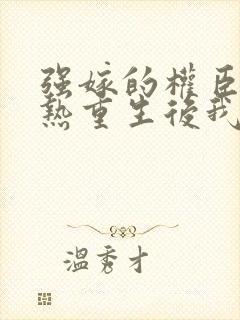 强嫁的權臣
熱重生後我
溫秀才